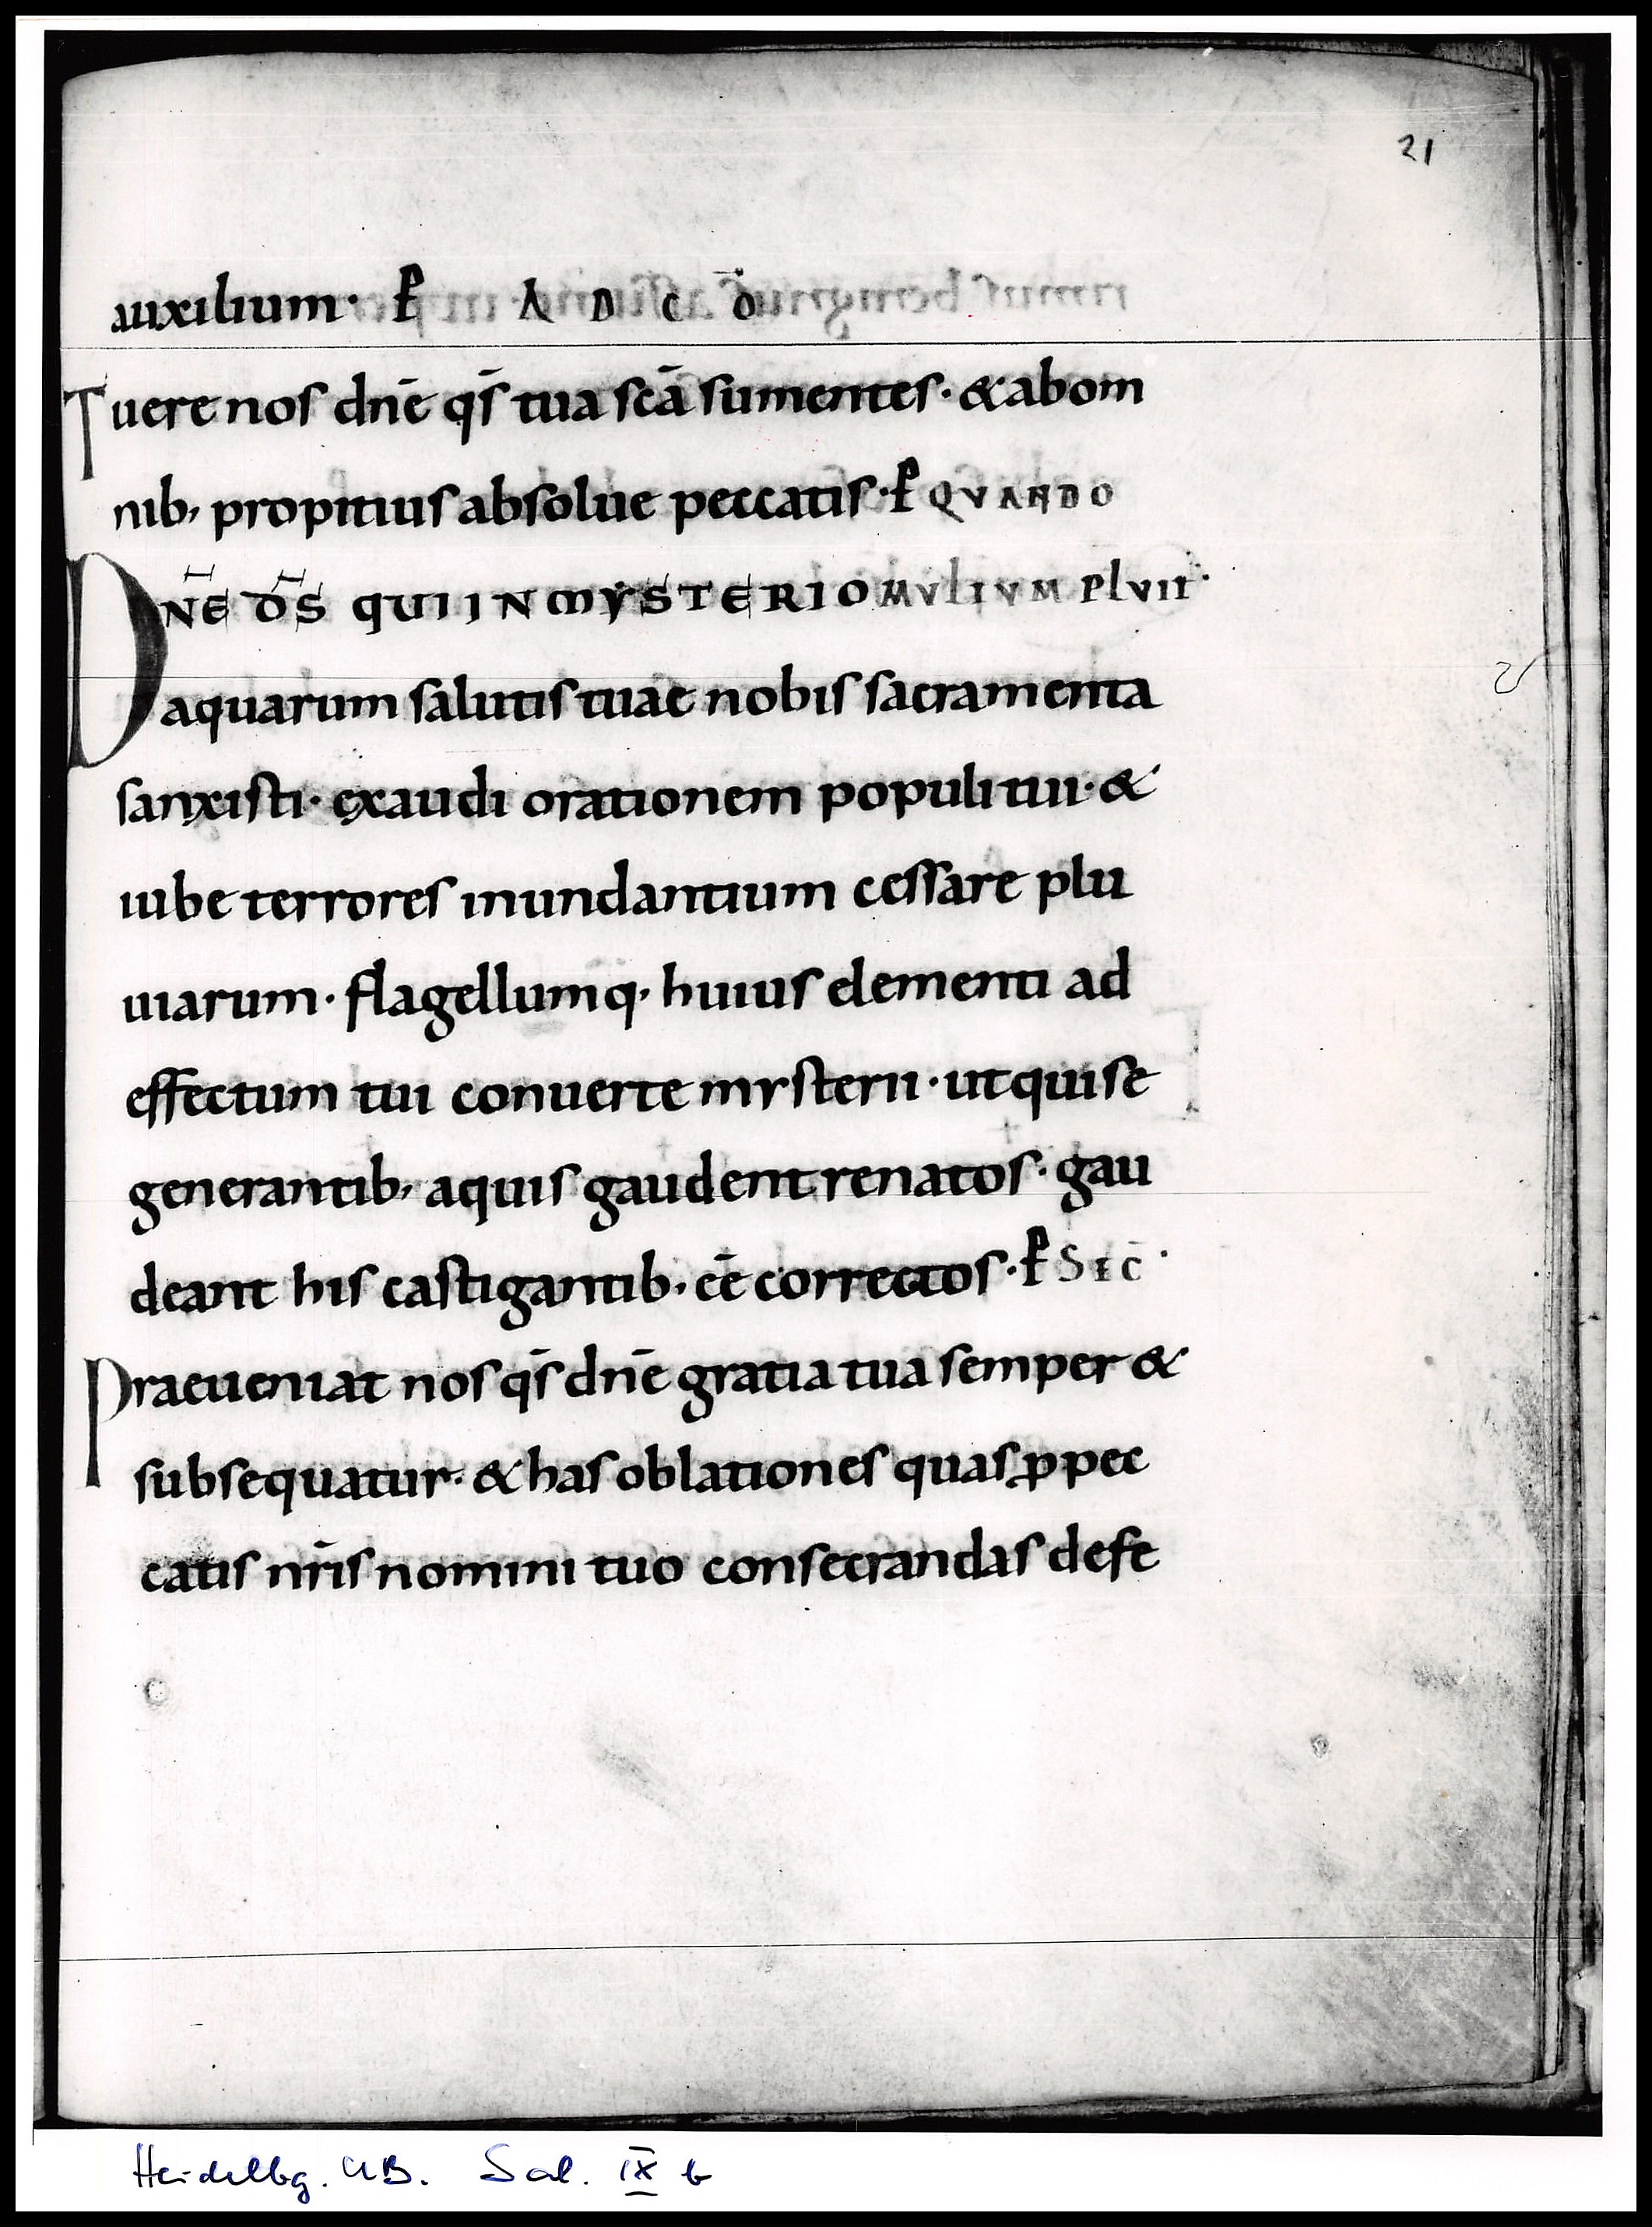 21
auxilium· P A D C Ō
Tuere nos dn̄e qs̄ tua sc̄a sumentes· & abom
nib, propitius absolue peccatis· P QVANDO
DN̄E D̄S QUI IN MYSTERIO MVLTVM PlVIT·
aquarum salutis tuae nobis sacramenta
sanxisti· exaudi orationem populi tui· &
iube terrores inundantium cessare plu
uiarum· flagellumq· huius elementi ad
effectum tui conuerte mysterii· ut qui se
generantib, aquis gaudent renatos· gau
deant his castigantib· ēē correctos· P SEC̄·
Praeueniat nos qs̄ dn̄e gratia tua semper &
subsequatur· & has oblationes quas ꝓ pec
catis nr̄is nomini tuo consecrandas defe
Heidelbg. UB. Sal. IX b